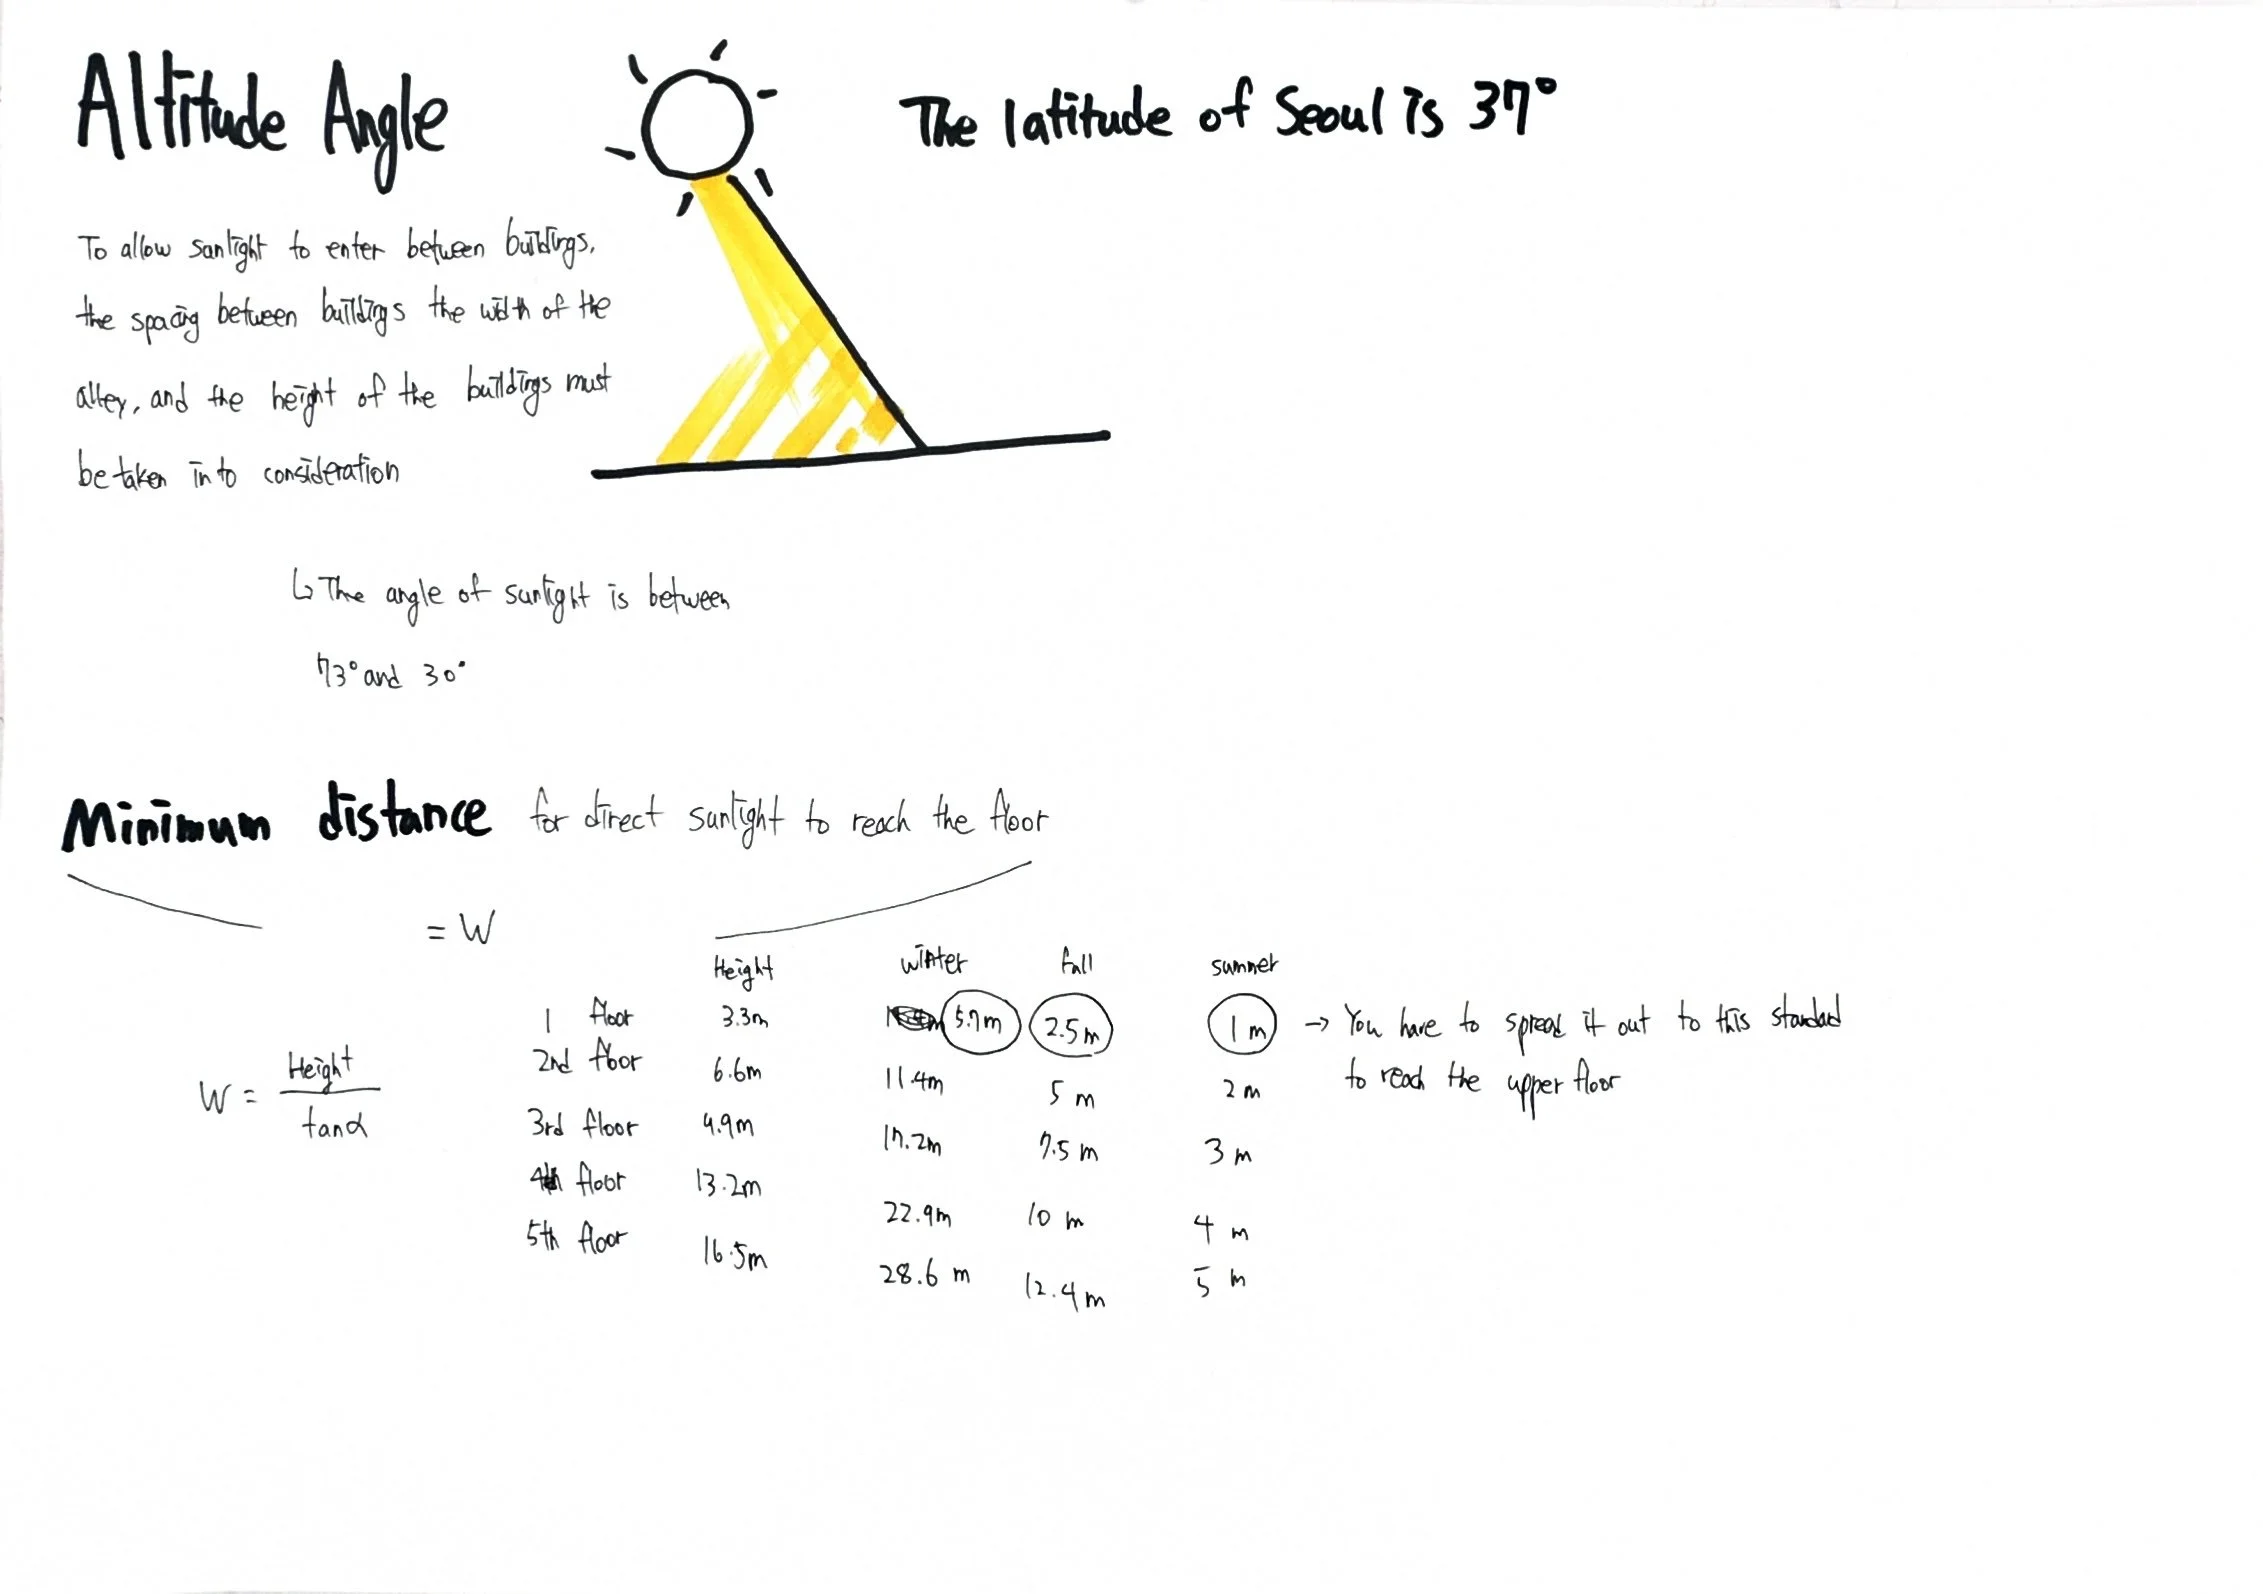 Altitude Angle
The latitude of Seoul is 37°
To allow sanlight to enter between buildings,
the spacing between buildings the width of the
alley, and the height of the buildings must
be taken into consideration
↳ The angle of sunlight is between
73° and 30°
Minimum distance for direct sunlight to reach the floor
= W
Height winter fall summer
1 floor 3.3m 5.7m 2.5m 1m → You have to spread it out to this standad
to reach the upper floor
2nd floor 6.6m 11.4m 5m 2m
W = Height / tanα
3rd floor 9.9m 17.2m 7.5m 3m
4th floor 13.2m 22.9m 10m 4m
5th floor 16.5m 28.6m 12.4m 5m